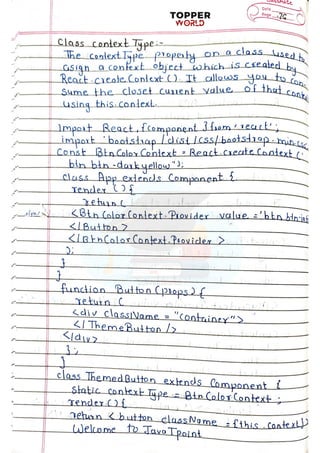 TOPPER
WORLD
Date
Page 76
Class context Type:-
The contextType property on a class used to
asign a context object which is created by
React.createContext(). It allows you to con-
sume the closet current value of that
using this.context.
Import React, {component } from 'react';
import 'bootstrap / dist / css / bootstrap.min.css
Const BtnColorContext = React.createContext ('
btn btn-darkyellow');
class App extends Component {
render () {
return (
<Btn ColorContext.Provider value = 'btn btn-
</Button >
</BtnColorContext.Provider >
);
}
}
function Button (props) {
return (
<div className = "container">
</ ThemeButton />
</div>
);
}
class ThemedButton extends Component {
Static context Type = BtnColorContext ;
render () {
return < button className = {this.context}>
Welcome to JavaTpoint